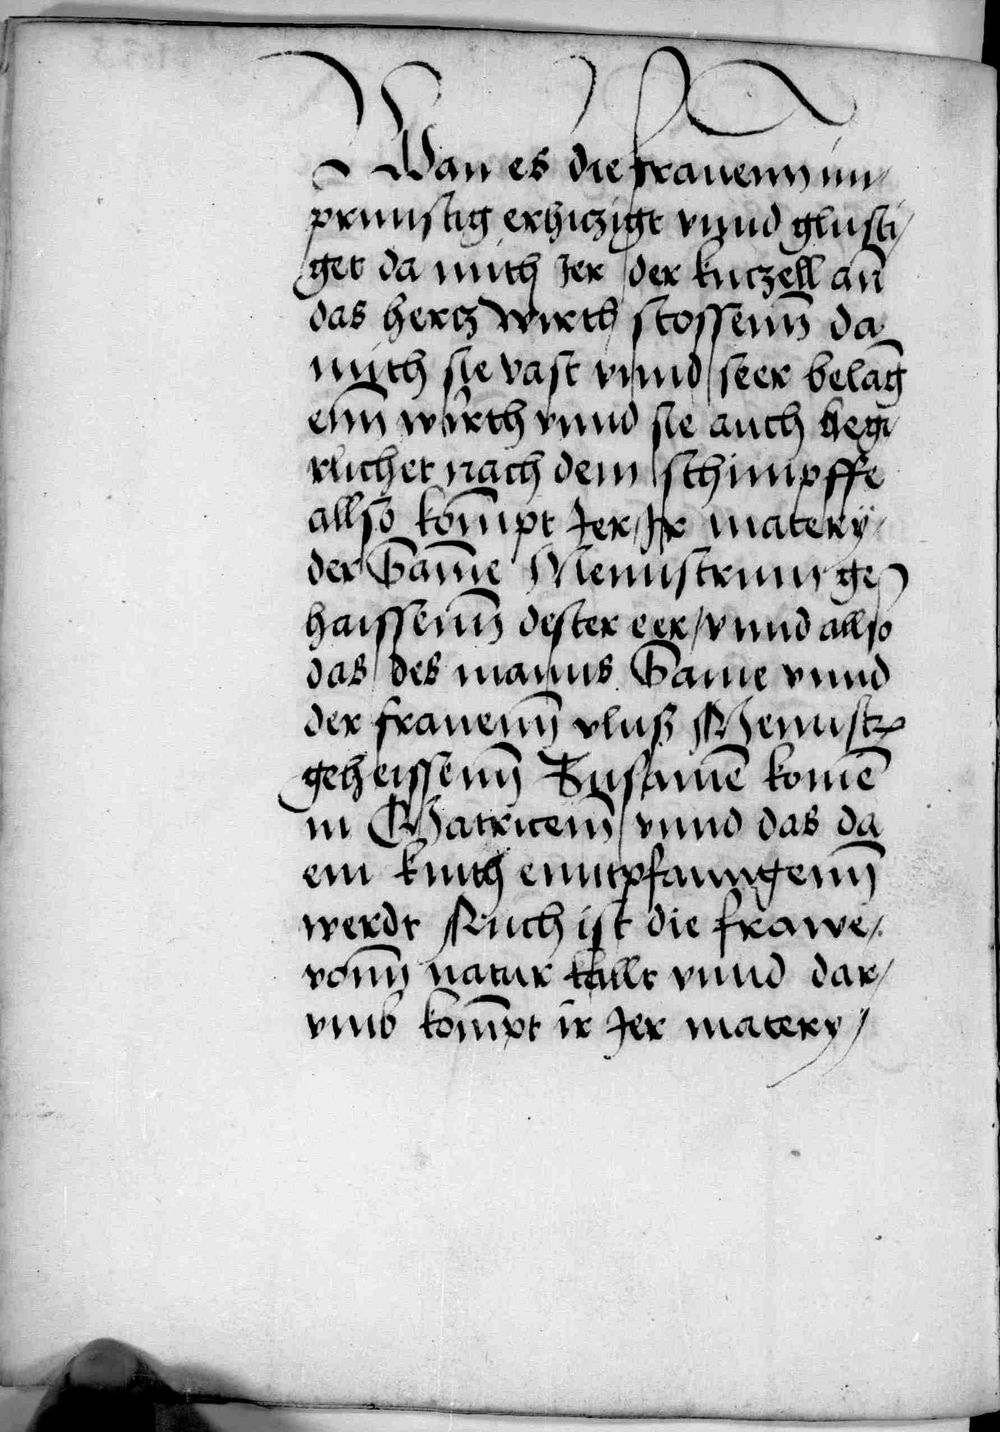 Wan es die frauenn in/
prunstig erhiczigt vnnd glusti/
get da mith Jer der kuczell an̄
das hertz wirth stossenn̄ da
mith sie vast vnnd seer belāg
enn̄ wirth vnnd sie auch begi/
rlicher nach dem schimpffe
allsō kom̄pt Jer Jr matery/
der Sam̄e Mennstrum ge/
haissenn̄ dester eer/vnnd allso
das des manns Same vnnd
der frauenn̄ vluß Mennstr
geheissenn̄ Zusamē̄ komē̄
in Matricem̄ vnnd das da
ein kinth enntpfanngenn̄
werdt Auch ist die frawe/
vonn̄ natur kallt vnnd dar/
vmb kom̄pt ir Jer matery/